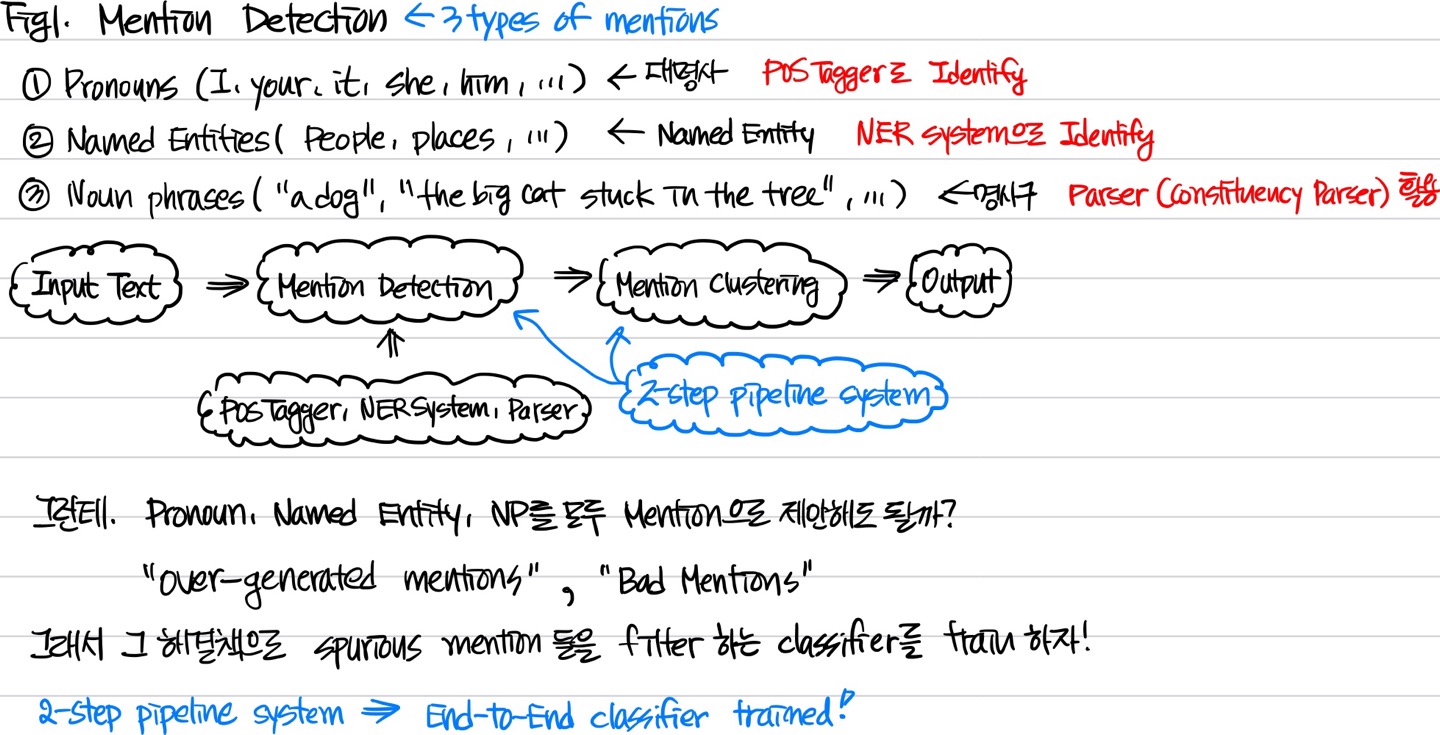 Fig1. Mention Detection ← 3 types of mentions
① Pronouns (I, your, it, she, him, ...) ← 대명사 POS Tagger로 Identify
② Named Entities( People, places, ...) ← Named Entity NER system으로 Identify
③ Noun phrases( "a dog", "the big cat stuck in the tree", ...) ← 명사구 Parser (Constituency Parser) 활용
Input Text ⇒ Mention Detection ⇒ Mention Clustering ⇒ Output
⇑
POS Tagger, NER System, Parser
2-step pipeline system
그런데. Pronoun, Named Entity, NP를 모두 Mention으로 제안해도 될까?
"over-generated mentions", "Bad Mentions"
그래서 그 해결책으로 spurious mention 들을 filter 하는 classifier를 train 하자!
2-step pipeline system ⇒ End-to-End classifier trained!